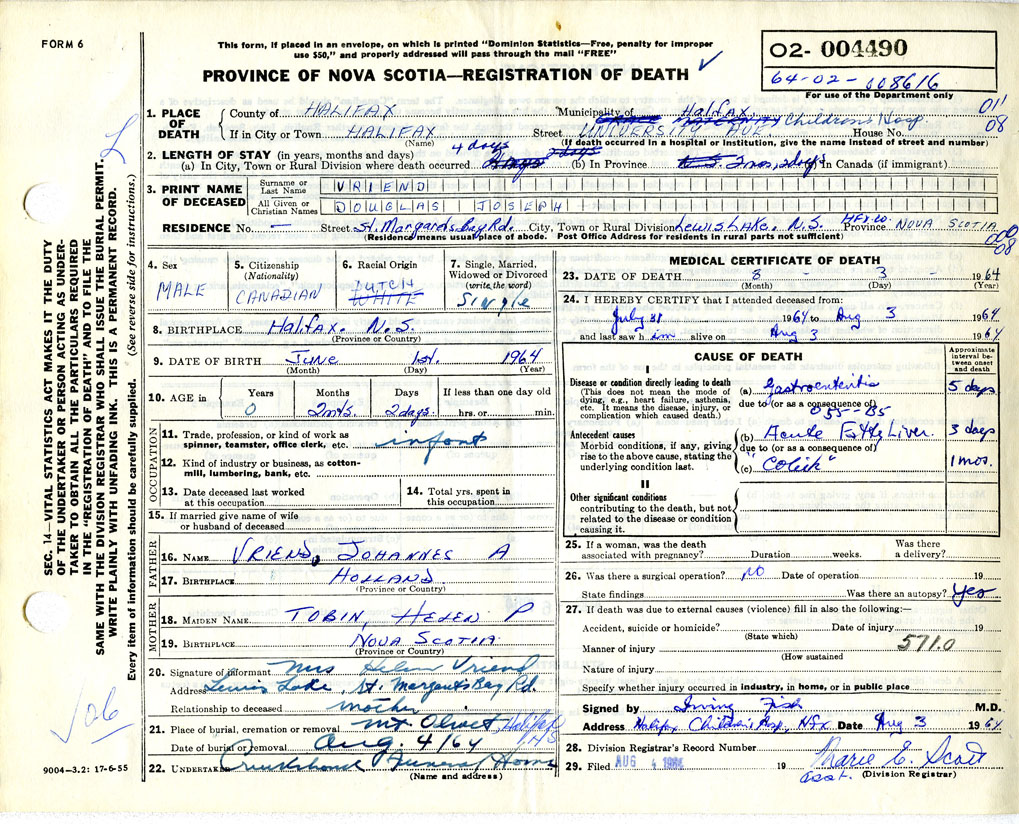 FORM 6
This form, if placed in an envelope, on which is printed "Dominion Statistics—Free, penalty for improper
use $50," and properly addressed will pass through the mail "FREE"
PROVINCE OF NOVA SCOTIA—REGISTRATION OF DEATH ✓
02- 004490
64-02-008616
For use of the Department only
1. PLACE OF DEATH
County of HALIFAX Municipality of Halifax
Children's Hosp. 01'
08
If in City or Town HALIFAX Street UNIVERSITY AVE. House No.
(Name) (If death occurred in a hospital or institution, give the name instead of street and number)
2. LENGTH OF STAY (in years, months and days)
(a) In City, Town or Rural Division where death occurred 4 days (b) In Province (c) In Canada (if immigrant)
3. PRINT NAME OF DECEASED
Surname or Last Name VRIEND
All Given or Christian Names DOUGLAS JOSEPH
RESIDENCE No. — Street St. Margarets Bay Rd. City, Town or Rural Division Lewis Lake, N.S. HFX. CO. Province NOVA SCOTIA
(Residence means usual place of abode. Post Office Address for residents in rural parts not sufficient)
000
08
4. Sex
MALE
5. Citizenship
(Nationality)
CANADIAN
6. Racial Origin
DUTCH
WHITE
7. Single, Married, Widowed or Divorced
(write the word)
Single
8. BIRTHPLACE Halifax. N.S.
(Province or Country)
9. DATE OF BIRTH June 1st. 1964
(Month) (Day) (Year)
10. AGE in
Years Months Days If less than one day old
0 2 mts. 2 days. hrs. or min.
OCCUPATION
11. Trade, profession, or kind of work as
spinner, teamster, office clerk, etc. infant
12. Kind of industry or business, as cotton-
mill, lumbering, bank, etc.
13. Date deceased last worked
at this occupation
14. Total yrs. spent in
this occupation
15. If married give name of wife
or husband of deceased
FATHER
16. NAME VRIEND, JOHANNES A
17. BIRTHPLACE HOLLAND
(Province or Country)
MOTHER
18. MAIDEN NAME TOBIN, HELEN P
19. BIRTHPLACE NOVA SCOTIA
(Province or Country)
20. Signature of informant Mrs Helen Vriend
Address Lewis Lake, St. Margarets Bay Rd.
Relationship to deceased mother
21. Place of burial, cremation or removal Mt Olivet Halifax
N.S
Date of burial or removal Aug. 4/64
22. UNDERTAKER Cruikshank Funeral Home
(Name and address)
MEDICAL CERTIFICATE OF DEATH
23. DATE OF DEATH 8 - 3 - 1964
(Month) (Day) (Year)
24. I HEREBY CERTIFY that I attended deceased from:
July 31 1964 to Aug 3 1964
and last saw him alive on Aug 3 1964
CAUSE OF DEATH
Approximate interval between onset and death
I
Disease or condition directly leading to death
(This does not mean the mode of
dying, e.g., heart failure, asthenia,
etc. It means the disease, injury, or
complication which caused death.)
(a) Gastroenteritis 5 days
due to (or as a consequence of)
055-85
Antecedent causes
Morbid conditions, if any, giving
rise to the above cause, stating the
underlying condition last.
(b) Acute Fatty Liver. 3 days
due to (or as a consequence of)
(c) "Colick" 1 mos.
II
Other significant conditions
contributing to the death, but not
related to the disease or condition
causing it.
25. If a woman, was the death
associated with pregnancy? Duration weeks. Was there
a delivery?
26. Was there a surgical operation? NO Date of operation 19
State findings Was there an autopsy? Yes
27. If death was due to external causes (violence) fill in also the following:—
Accident, suicide or homicide? Date of injury 19
(State which)
Manner of injury 571.0
(How sustained
Nature of injury
Specify whether injury occurred in industry, in home, or in public place
Signed by Irving Fish M.D.
Address Halifax Children's Hosp, Hfx. Date Aug 3 1964
28. Division Registrar's Record Number
29. Filed AUG 4 1964 19 Marie E. Scott
asst. (Division Registrar)
SEC. 14—VITAL STATISTICS ACT MAKES IT THE DUTY
OF THE UNDERTAKER OR PERSON ACTING AS UNDER-
TAKER TO OBTAIN ALL THE PARTICULARS REQUIRED
IN THE "REGISTRATION OF DEATH" AND TO FILE THE
SAME WITH THE DIVISION REGISTRAR WHO SHALL ISSUE THE BURIAL PERMIT.
WRITE PLAINLY WITH UNFADING INK. THIS IS A PERMANENT RECORD.
Every item of information should be carefully supplied. (See reverse side for instructions.)
9004—3.2: 17-6-55